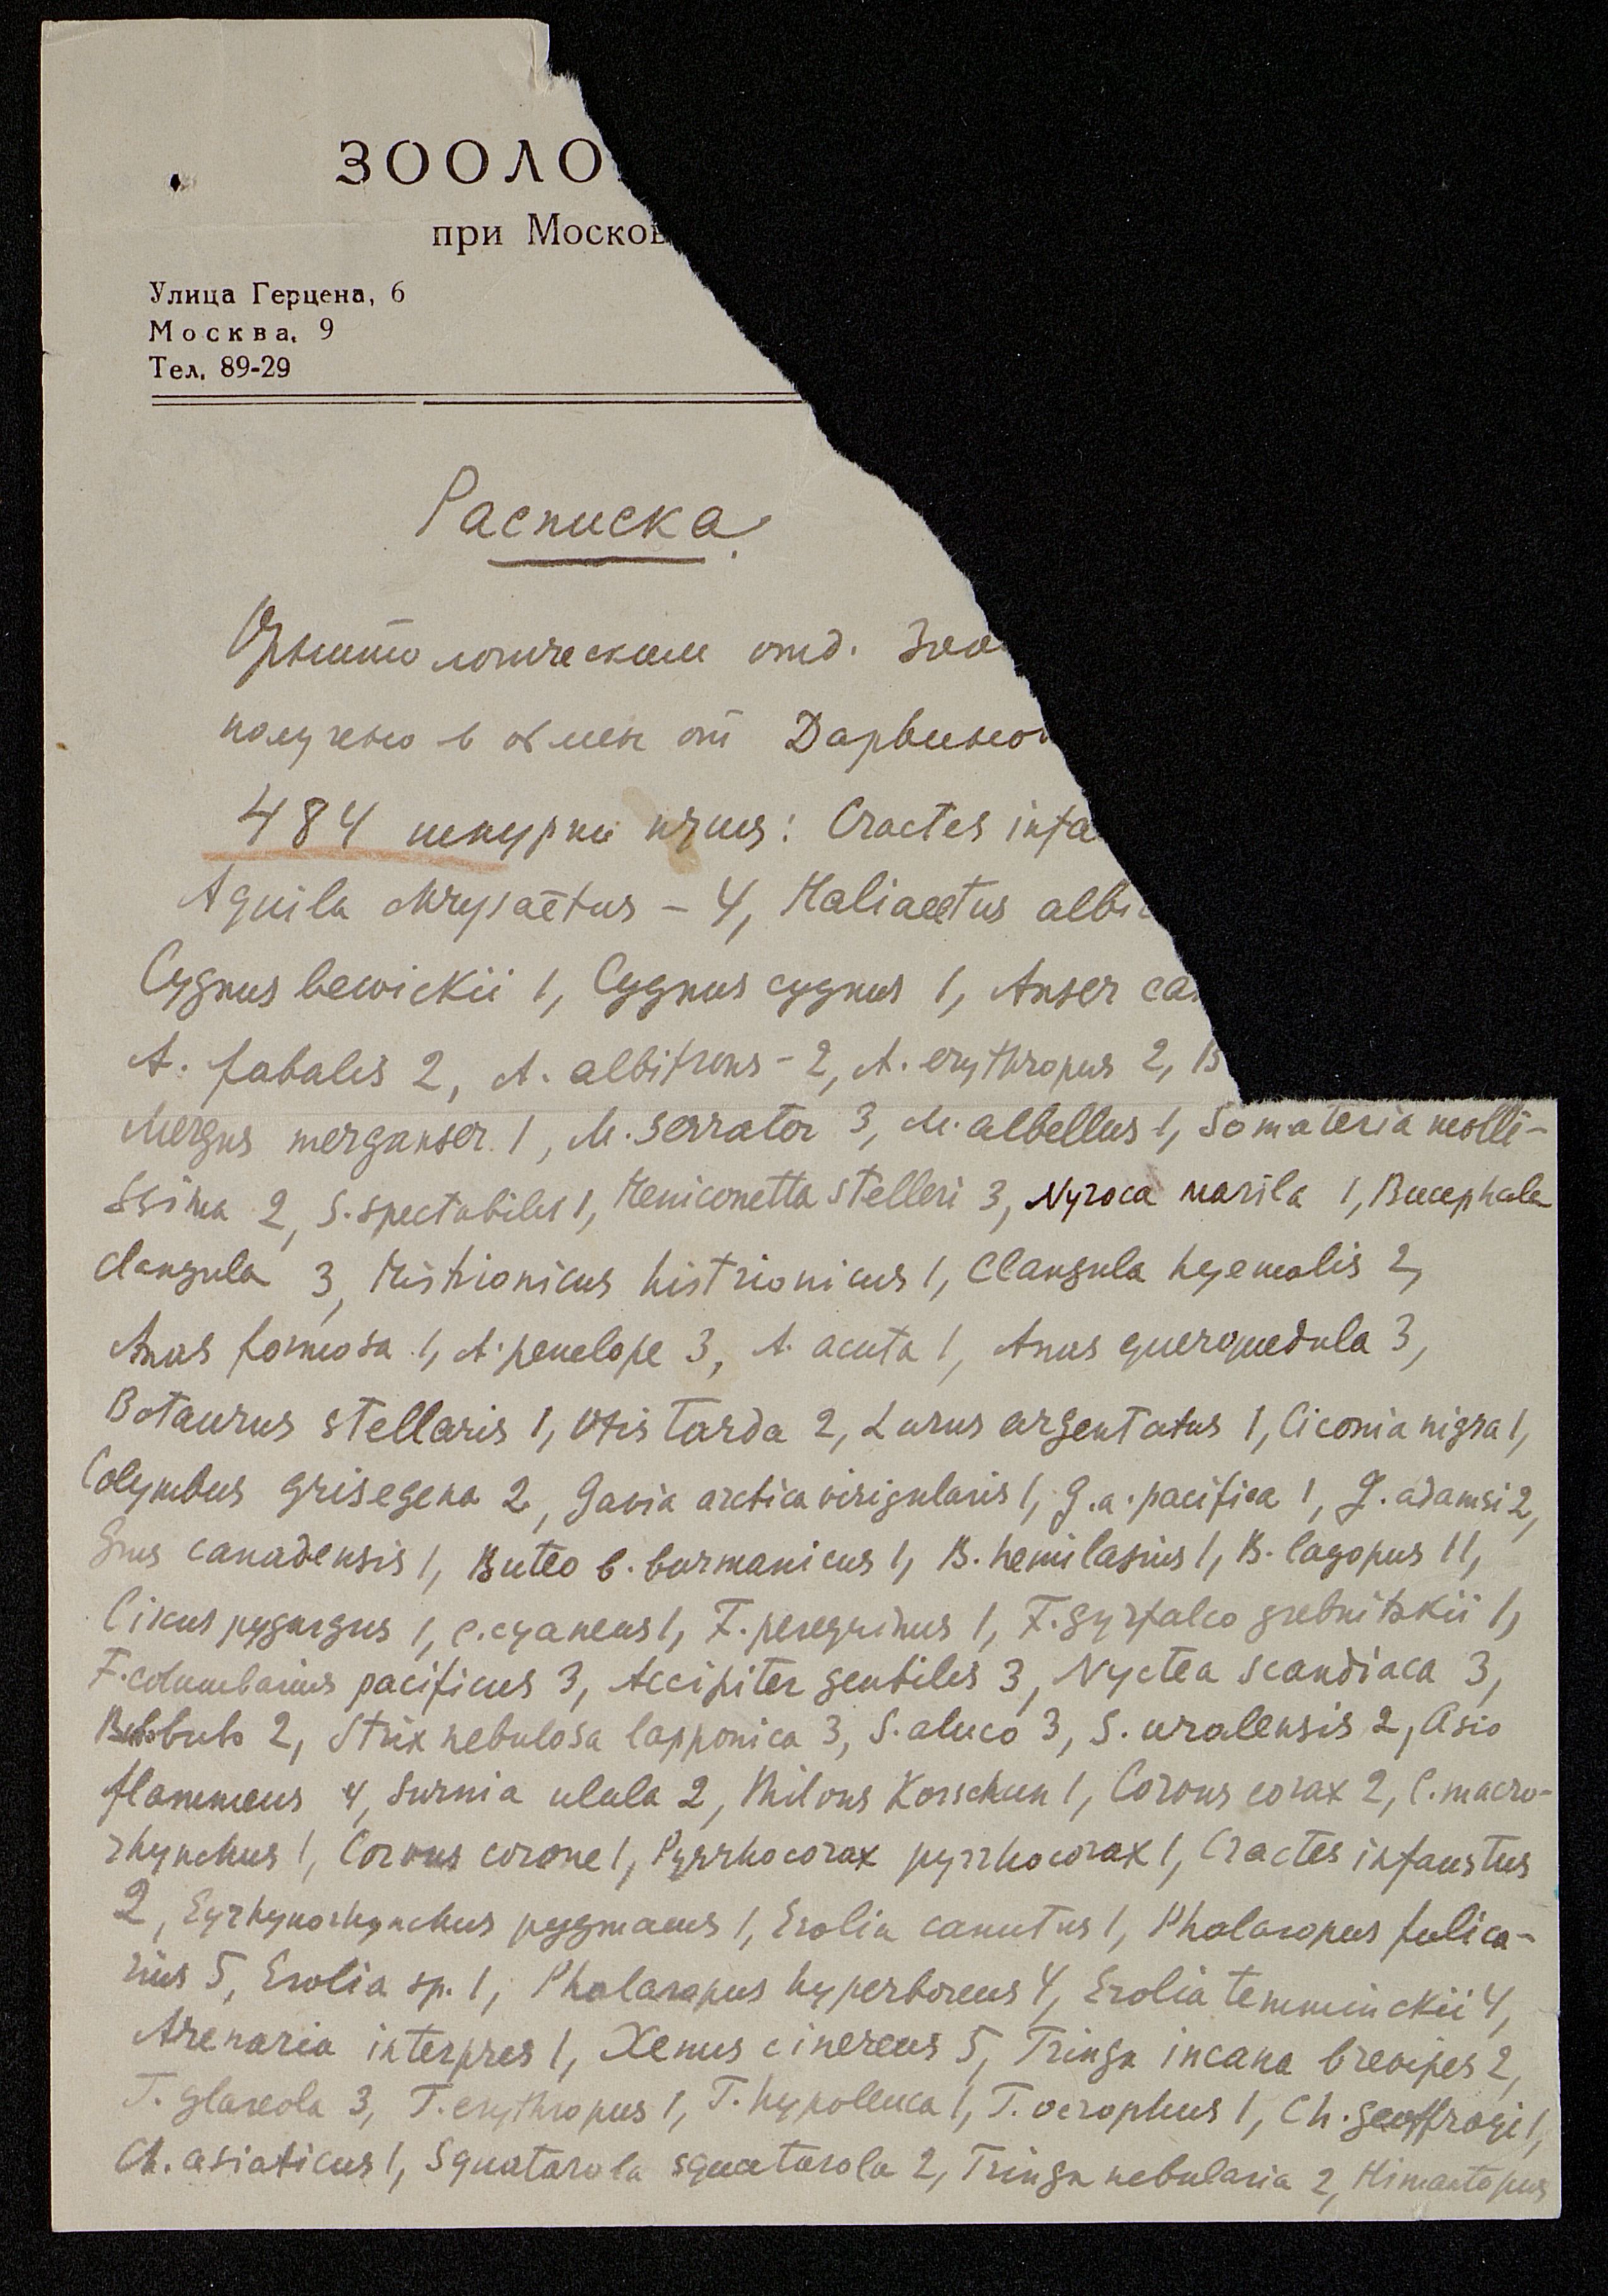 ЗООЛО
при Москов
Улица Герцена, 6
Москва, 9
Тел. 89-29
Расписка.
Орнитологическим отд. Зоо
получено в обмен от Дарвинов
484 шкурки птиц: Cractes infa
Aquila chrysaëtus – 4, Haliaeetus albic
Cygnus bewickii 1, Cygnus cygnus 1, Anser ca
A. fabalis 2, A. albifrons – 2, A. erythropus 2, B
Mergus merganser 1, M. serrator 3, M. albellus 1, Somateria molli-
ssima 2, S. spectabilis 1, Heniconetta stelleri 3, Nyroca marila 1, Bucephala
clangula 3, Histrionicus histrionicus 1, Clangula hyemalis 2,
Anas formosa 1, A. penelope 3, A. acuta 1, Anas querquedula 3,
Botaurus stellaris 1, Otis tarda 2, Larus argentatus 1, Ciconia nigra 1,
Colymbus grisegena 2, Gavia arctica virigularis 1, G. a. pacifica 1, G. adamsi 2,
Grus canadensis 1, Buteo b. burmanicus 1, B. hemilasius 1, B. lagopus 11,
Circus pygargus 1, C. cyaneus 1, F. peregrinus 1, F. gyrfalco grebnitzkii 1,
F. columbarius pacificus 3, Accipiter gentilis 3, Nyctea scandiaca 3,
Bubo bubo 2, Strix nebulosa lapponica 3, S. aluco 3, S. uralensis 2, Asio
flammeus 4, Surnia ulula 2, Milvus korschun 1, Corvus corax 2, C. macro-
rhynchus 1, Corvus corone 1, Pyrrhocorax pyrrhocorax 1, Cractes infaustus
2, Eyrhynorhynchus pygmaeus 1, Erolia canutus 1, Phalaropus fulica-
rius 5, Erolia sp. 1, Phalaropus hyperboreus 4, Erolia temminckii 4,
Arenaria interpres 1, Xenus cinereus 5, Tringa incana brevipes 2,
T. glareola 3, T. erythropus 1, T. hypoleuca 1, T. ocrophus 1, Ch. geoffroyi 1,
Ch. asiaticus 1, Squatarola squatarola 2, Tringa nebularia 2, Himantopus